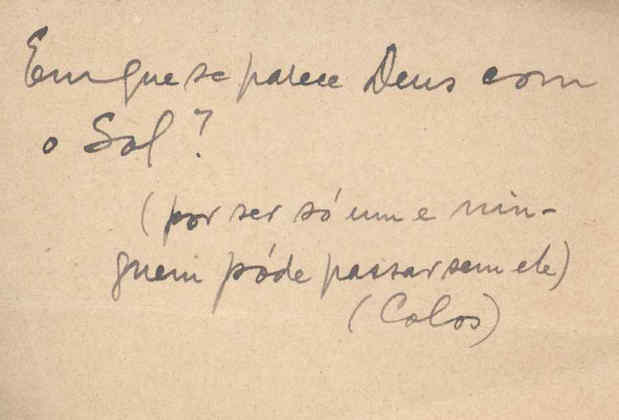 Em que se parece Deus com
o Sol?
(por ser só um e nin-
guem póde passar sem ele)
(Colos)